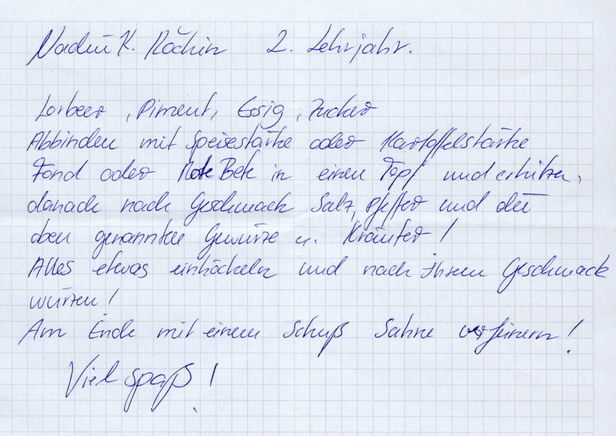 Nadin K. Köchin 2. Lehrjahr.
Lorbeer, Piment, Essig, Zucker
Abbinden mit Speisestärke oder Kartoffelstärke
Fond oder Rote Bete in einen Topf und erhitzen,
danach nach Geschmack Salz, Pfeffer und die
oben genannten Gewürze u. Kräuter!
Alles etwas einköcheln und nach Ihrem Geschmack
würzen!
Am Ende mit einem Schuß Sahne verfeinern!
Viel spaß!